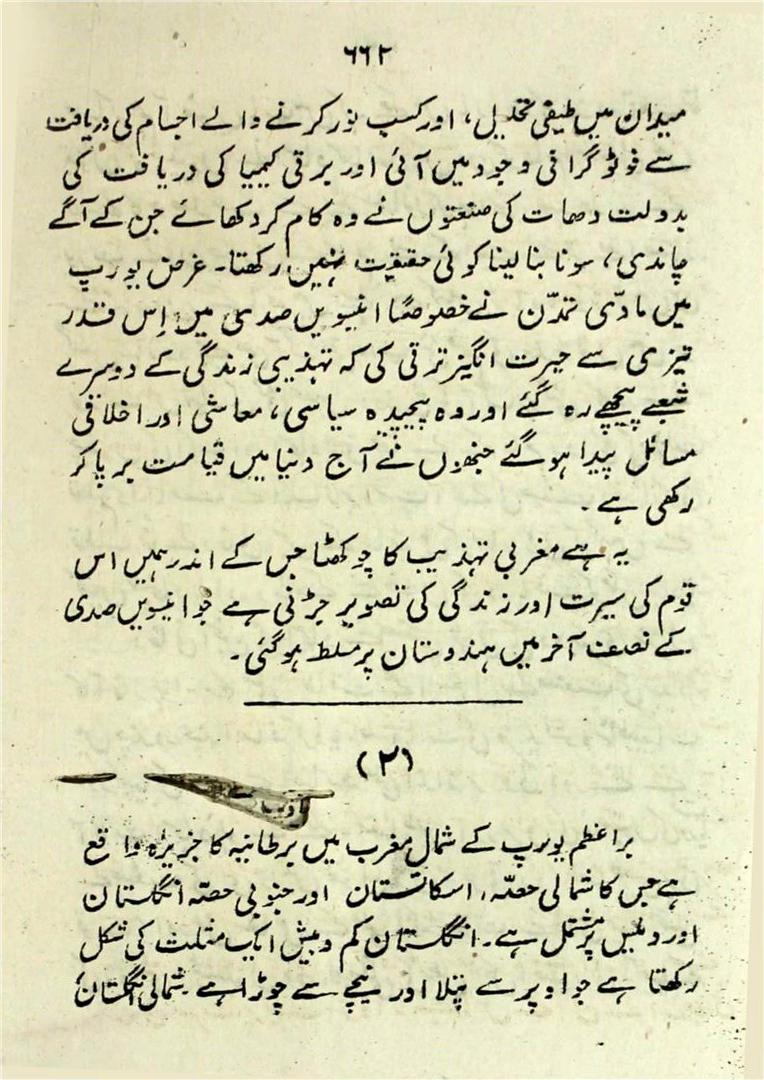 ۶۶۲
میدان میں طیفی تحلیل، اور کسب نور کرنے والے اجسام کی دریافت
سے فوٹو گرافی وجود میں آئی اور برقی کیمیا کی دریافت کی
بدولت دھات کی صنعتوں نے وہ کام کر دکھائے جن کے آگے
چاندی، سونا بنا لینا کوئی حقیقت نہیں رکھتا۔ غرض یورپ
میں مادّی تمدّن نے خصوصًا انیسویں صدی میں اِس قدر
تیزی سے حیرت انگیز ترقی کی کہ تہذیبی زندگی کے دوسرے
شعبے پیچھے رہ گئے اور وہ پیچیدہ سیاسی، معاشی اور اخلاقی
مسائل پیدا ہو گئے جنھوں نے آج دنیا میں قیامت برپا کر
رکھی ہے۔
یہ ہے مغربی تہذیب کا چوکھٹا جس کے اندر ہمیں اس
قوم کی سیرت اور زندگی کی تصویر جڑنی ہے جو انیسویں صدی
کے نصف آخر میں ہندوستان پر مسلط ہو گئی۔
(۲)
براعظم یورپ کے شمال مغرب میں برطانیہ کا جزیرہ واقع
ہے جس کا شمالی حصّہ، اسکاٹستان اور جنوبی حصّہ انگلستان
اور ویلس پر مشتمل ہے۔ انگلستان کم و بیش ایک مثلث کی شکل
رکھتا ہے جو اوپر سے پتلا اور نیچے سے چوڑا ہے۔ شمالی انگلستان